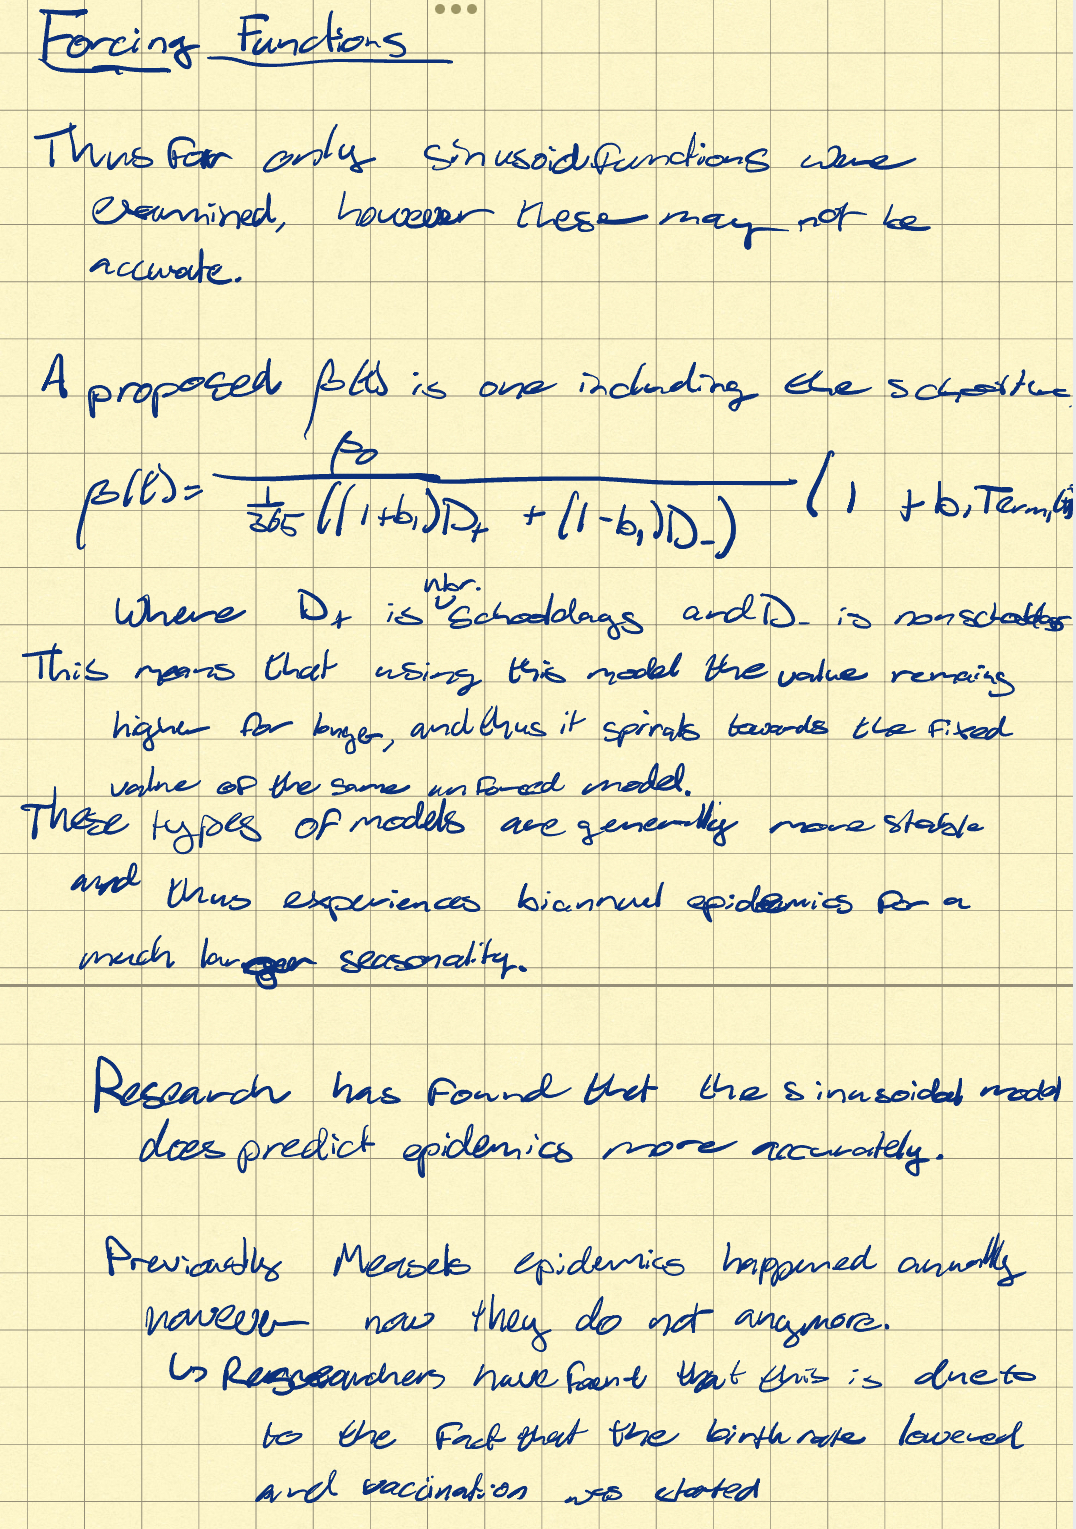 Forcing Functions
Thus far only sinusoid functions were
examined, however these may not be
accurate.
A proposed β(t) is one including the
β(t) = β₀ / (1/365 ((1+b₁)D₊ + (1-b₁)D₋)) (1 + b₁Term
nbr.
Where D₊ is schooldays and D₋ is
This means that using this model the value remains
higher for longer, and thus it spirals towards the fixed
value of the same unforced model.
These types of models are generally more stable
and thus experiences biannual epidemics for a
much larger seasonality.
Research has found that the sinusoidal model
does predict epidemics more accurately.
Previously Measels epidemics happened annually
however now they do not anymore.
↳ Researchers have that this is due to
to the fact that the birth rate lowered
and vaccination was started